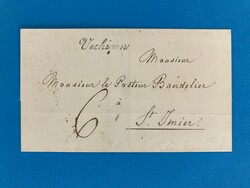 Vechigen
Monsieur
Monsieur le Pasteur Bandelier
à
6
St. Imier.